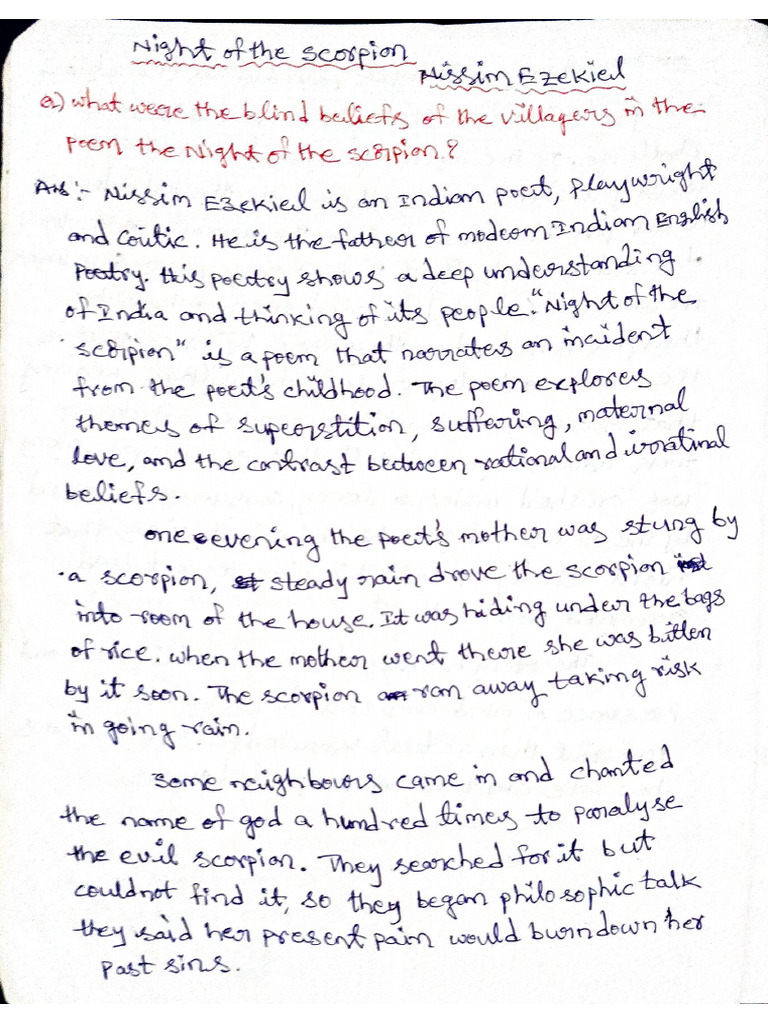 Night of the scorpion
Nissim Ezekiel
Q) what were the blind beliefs of the villagers in the
poem the Night of the scorpion?
Ans :- Nissim Ezekiel is an Indian poet, playwright
and Coutic. He is the father of modern Indian English
Poetry. this poetry shows a deep understanding
of India and thinking of its people. "Night of the
scorpion" is a poem that narrates an incident
from the poet's childhood. The poem explores
themes of superstition, suffering, maternal
love, and the contrast between rational and irratinal
beliefs.
one evening the poet's mother was stung by
a scorpion, steady rain drove the scorpion
into room of the house. It was hiding under the bags
of rice. when the mother went there she was bitten
by it soon. The scorpion ran away taking risk
in going rain.
Some neighbours came in and chanted
the name of god a hundred times to paralyse
the evil scorpion. They searched for it but
couldnot find it, so they began philosophic talk
they said her present pain would burn down her
past sins.